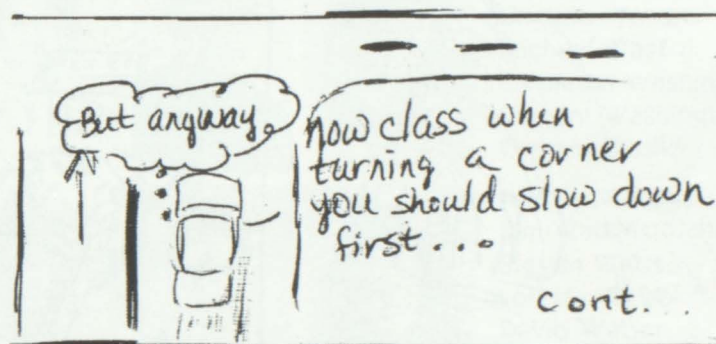 But anyway,
now class when
turning a corner
you should slow down
first...
cont...